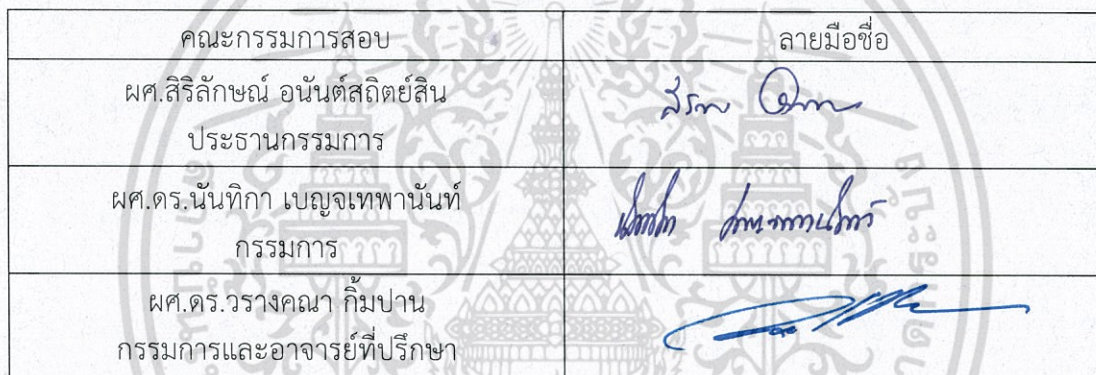 คณะกรรมการสอบ ลายมือชื่อ
ผศ.สิริลักษณ์ อนันต์สถิตย์สิน
ประธานกรรมการ
ผศ.ดร.นันทิกา เบญจเทพานันท์
กรรมการ
ผศ.ดร.วรางคณา กิ้มปาน
กรรมการและอาจารย์ที่ปรึกษา